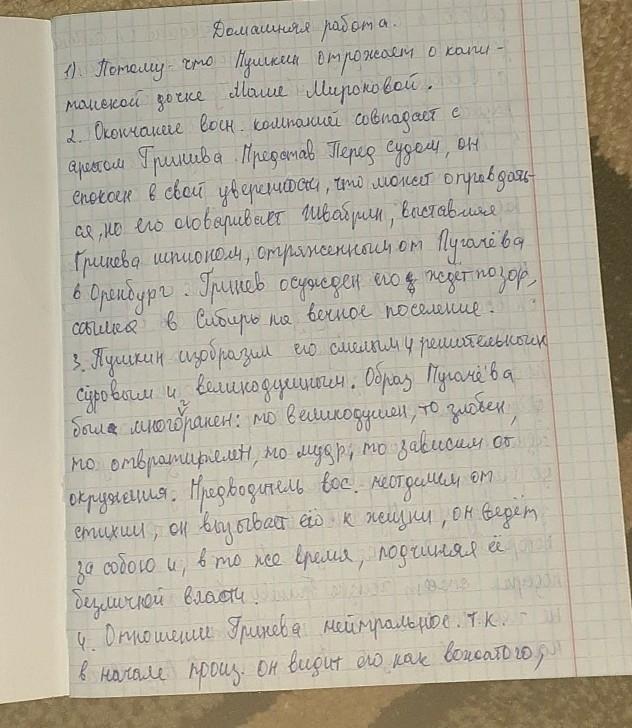 Домашняя работа.
1). Потому-что Пушкин отрожает о капи-
танской дочке Маше Мироновой.
2. Окончание воен. компаний совпадает с
арестом Гринива. Представ Перед судом, он
спокоен в свой уверенности, что может оправдать-
ся, но его оговаривает Швабрин, выставляя
Гринева шпионом, отряженным от Пугачёва
в Оренбург. Гринев осужден его ждет позор,
ссылка в Сибирь на вечное поселение.
3. Пушкин изобразил его смелым и решительным
суровым и великодушным. Образ Пугачёва
была многогранен: то великодушен, то злобен,
то отвратителен, то мудр, то зависим от
окружения. Предводитель вос. неотделим от
стихии, он вызывает её к жизни, он ведёт
за собою и, в то же время, подчиняя её
безличной власти.
4. Отношении Гринева нейтральное. т.к.
в начале произ. он видит его как вожатого,